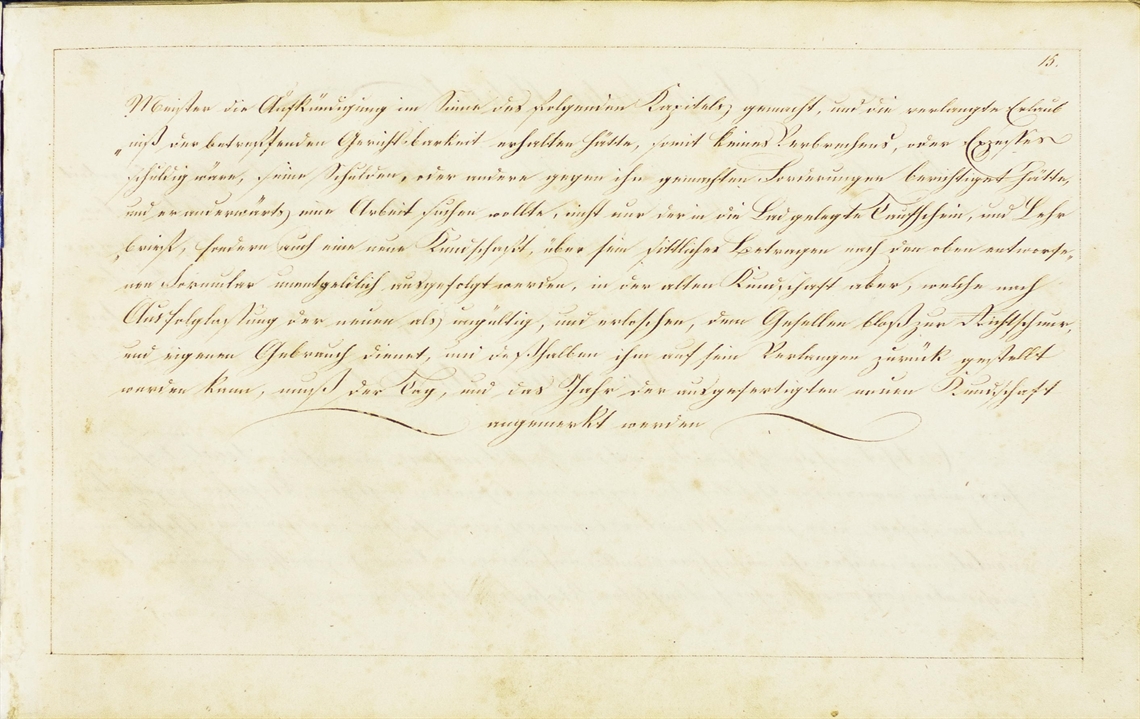 15.
Meister die Aufkündigung im Sinne des folgenden Kapitels gemacht, und die verlangte Erlaub
„niß der betreffenden Gerichtsbarkeit erhalten hätte, somit keines Verbrechens, oder Exzesses
schuldig wäre, seine Schulden, oder andere gegen ihn gemachten Forderungen berichtiget hätte,
und er anderwärts eine Arbeit suchen wollte, nicht nur der in die Lad gelegte Taufschein, und Lehr
„brief, sondern auch eine neue Kundschaft, über sein sittliches Betragen nach dem oben entworfe„
nen Formular unentgeldlich ausgefolgt werden, in der alten Kundschaft aber, welche nach
Ausfolglassung der neuen als ungültig, und erloschen, dem Gesellen bloß zur Richtschnur,
und eigenen Gebrauch dienet, und deßhalben ihm auf sein Verlangen zurück gestellt
werden kann, muß der Tag, und das Jahr der ausgefertigten neuen Kundschaft
angemerkt werden